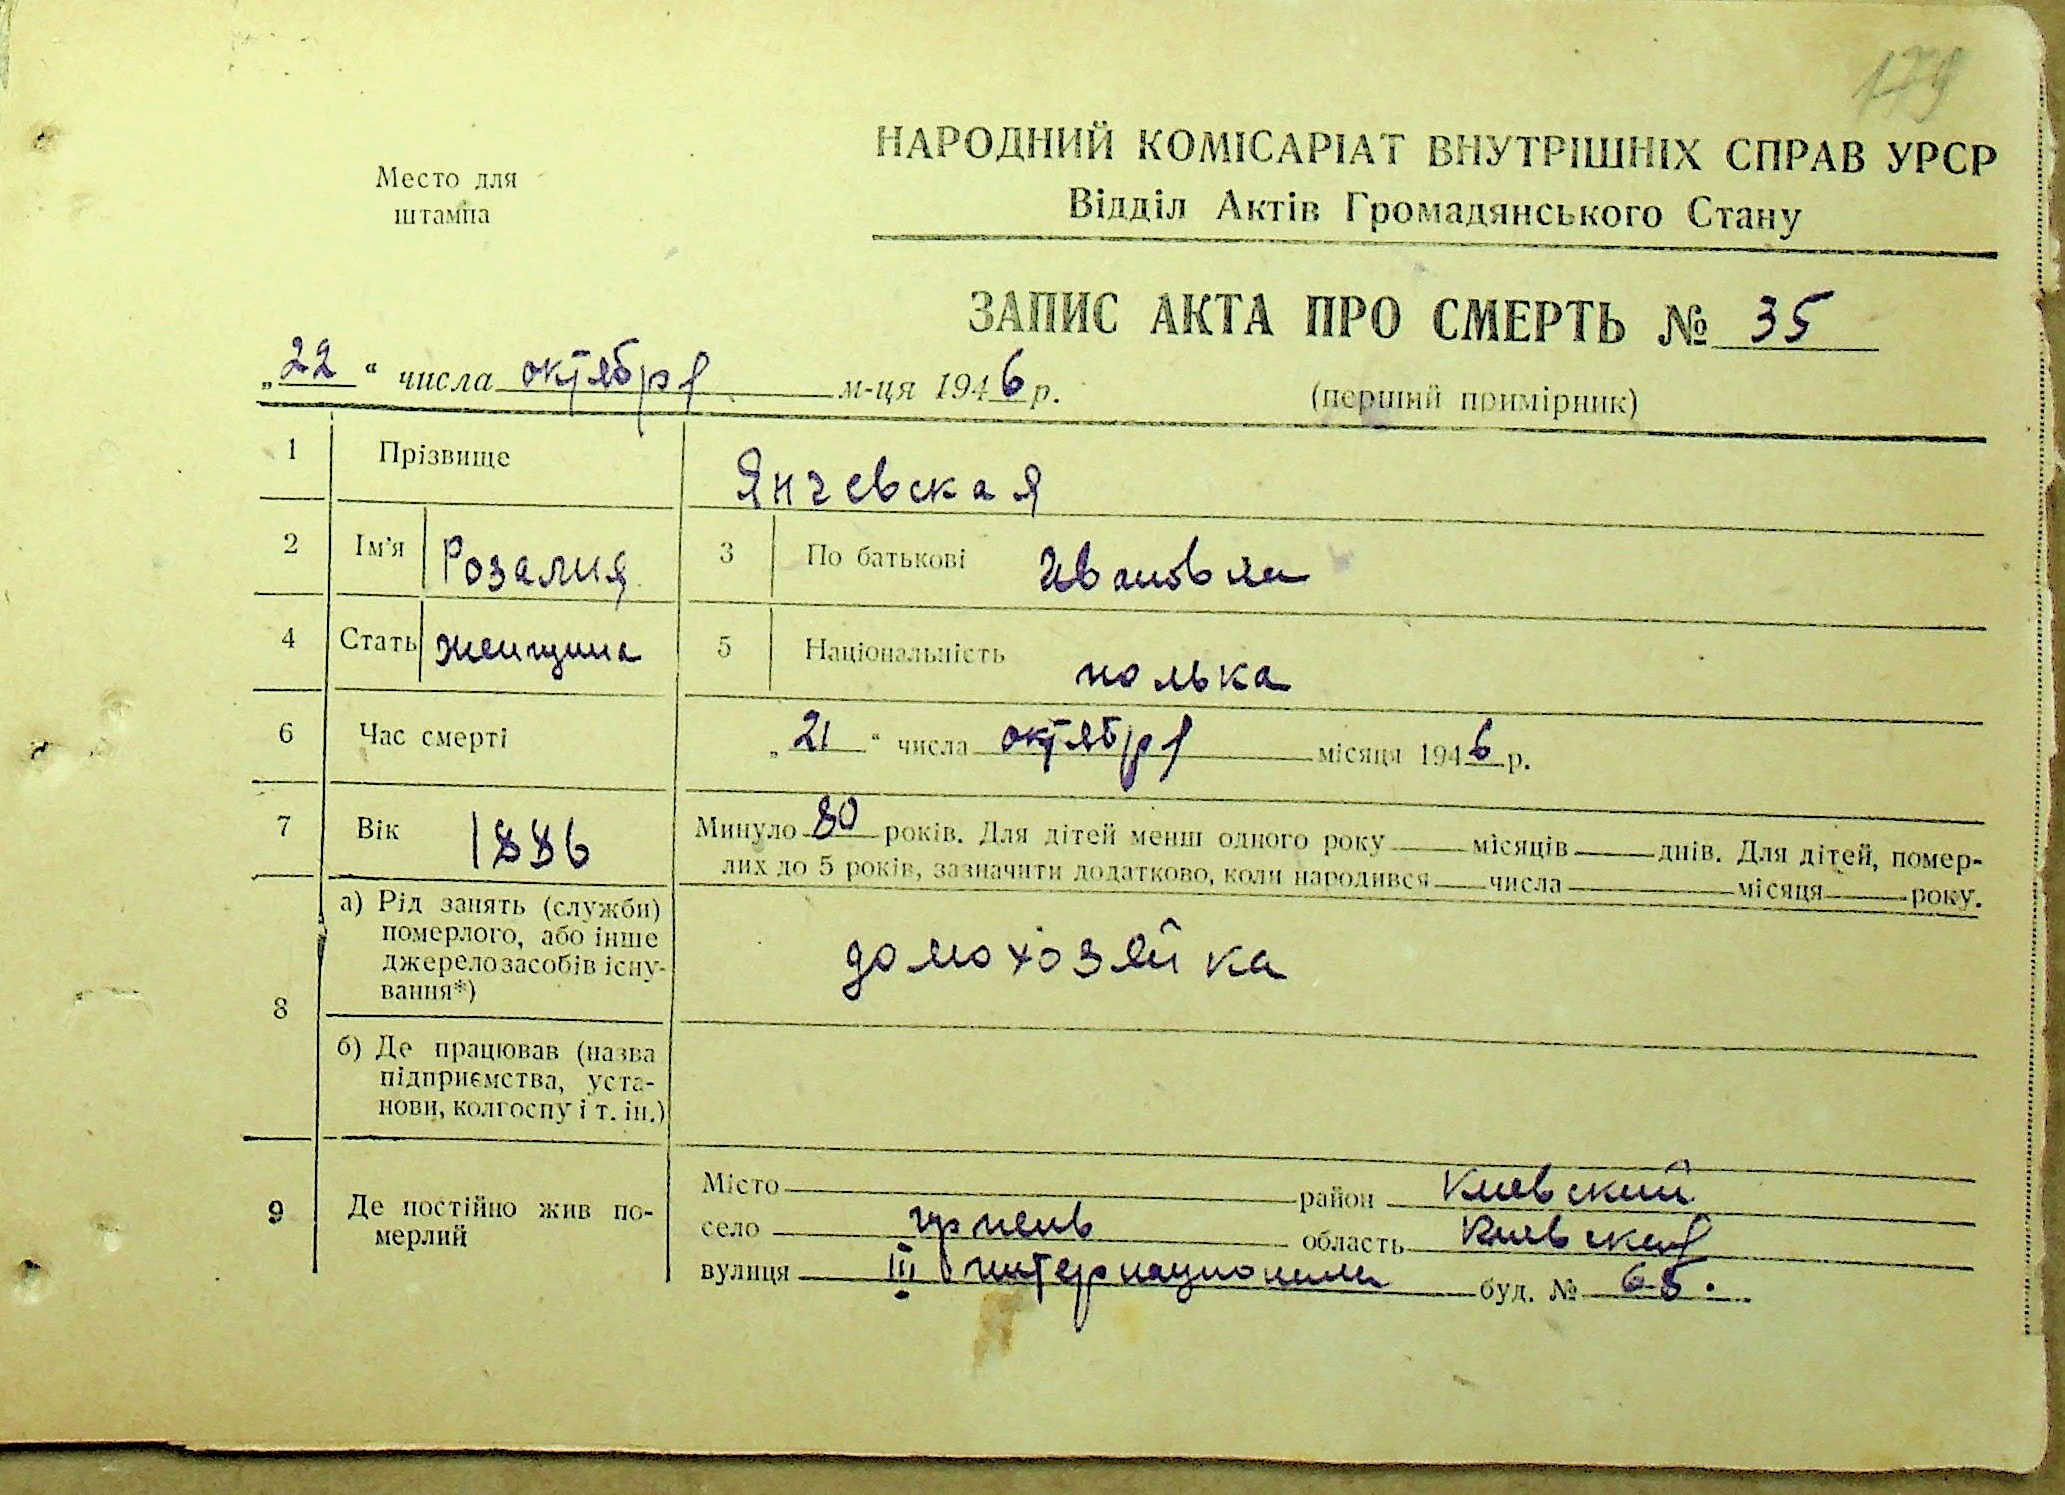 179
Место для
штампа
НАРОДНИЙ КОМІСАРІАТ ВНУТРІШНІХ СПРАВ УРСР
Відділ Актів Громадянського Стану
ЗАПИС АКТА ПРО СМЕРТЬ № 35
„22“ числа октября м-ця 1946 р.
(перший примірник)
1 Прізвище Янчевская
2 Ім'я Розалия 3 По батькові Ивановна
4 Стать женщина 5 Національність полька
6 Час смерті „21“ числа октября місяця 1946 р.
7 Вік 1886 Минуло 80 років. Для дітей менш одного року місяців днів. Для дітей, помер-
лих до 5 років, зазначити додатково, коли народився числа місяця року.
8 а) Рід занять (служби)
померлого, або інше
джерело засобів існу-
вання*)
домохозяйка
б) Де працював (назва
підприємства, уста-
нови, колгоспу і т. ін.)
9 Де постійно жив по-
мерлий
Місто район Киевский
село ирпень область Киевская
вулиця III интернационала буд. № 65.